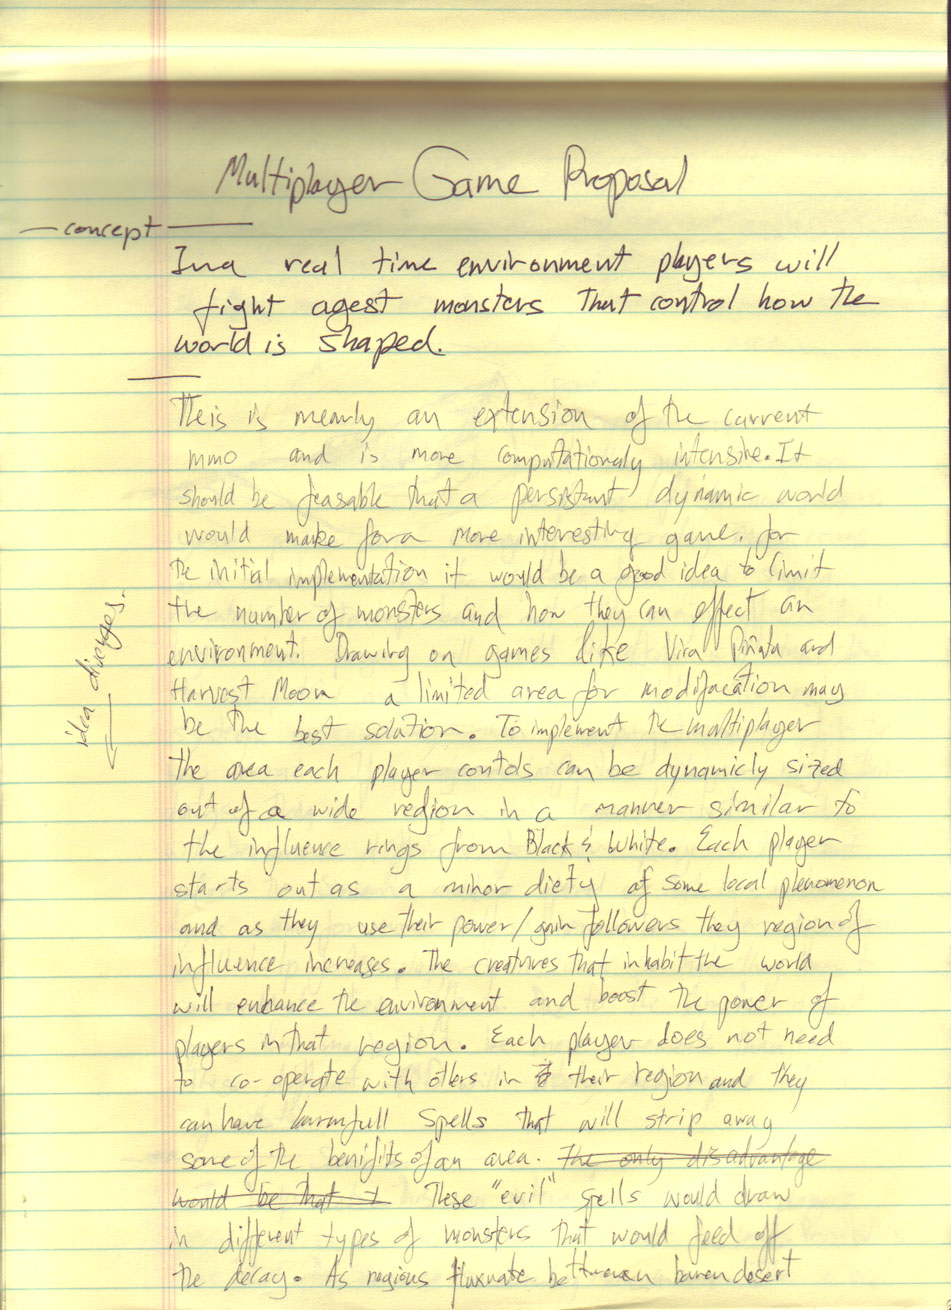 Multiplayer Game Proposal
— concept —
In a real time environment players will
fight agest monsters that control how the
world is shaped.
Theis is mearly an extension of the current
mmo and is more computationaly intensive. It
should be feasable that a persistant dynamic world
would make for a more interesting game. for
the initial implementation it would be a good idea to limit
the number of monsters and how they can effect an
environment. Drawing on games like Viva Piñata and
Harvest Moon a limited area for modifacation may
be the best solution. To implement the multiplayer
the area each player contols can be dynamicly sized
out of a wide region in a manner similar to
the influence rings from Black & White. Each player
starts out as a minor diety of some local phenomenon
and as they use their power/gain followers they region of
influence increases. The creatures that inhabit the world
will enhance the environment and boost the power of
players in that region. Each player does not need
to co-operate with others in their region and they
can have harmfull spells that will strip away
some of the benifits of an area. the only disadvantage
would be that I These "evil" spells would draw
in different types of monsters that would feed off
the decay. As regions fluxuate between baren desert
idea diverges.